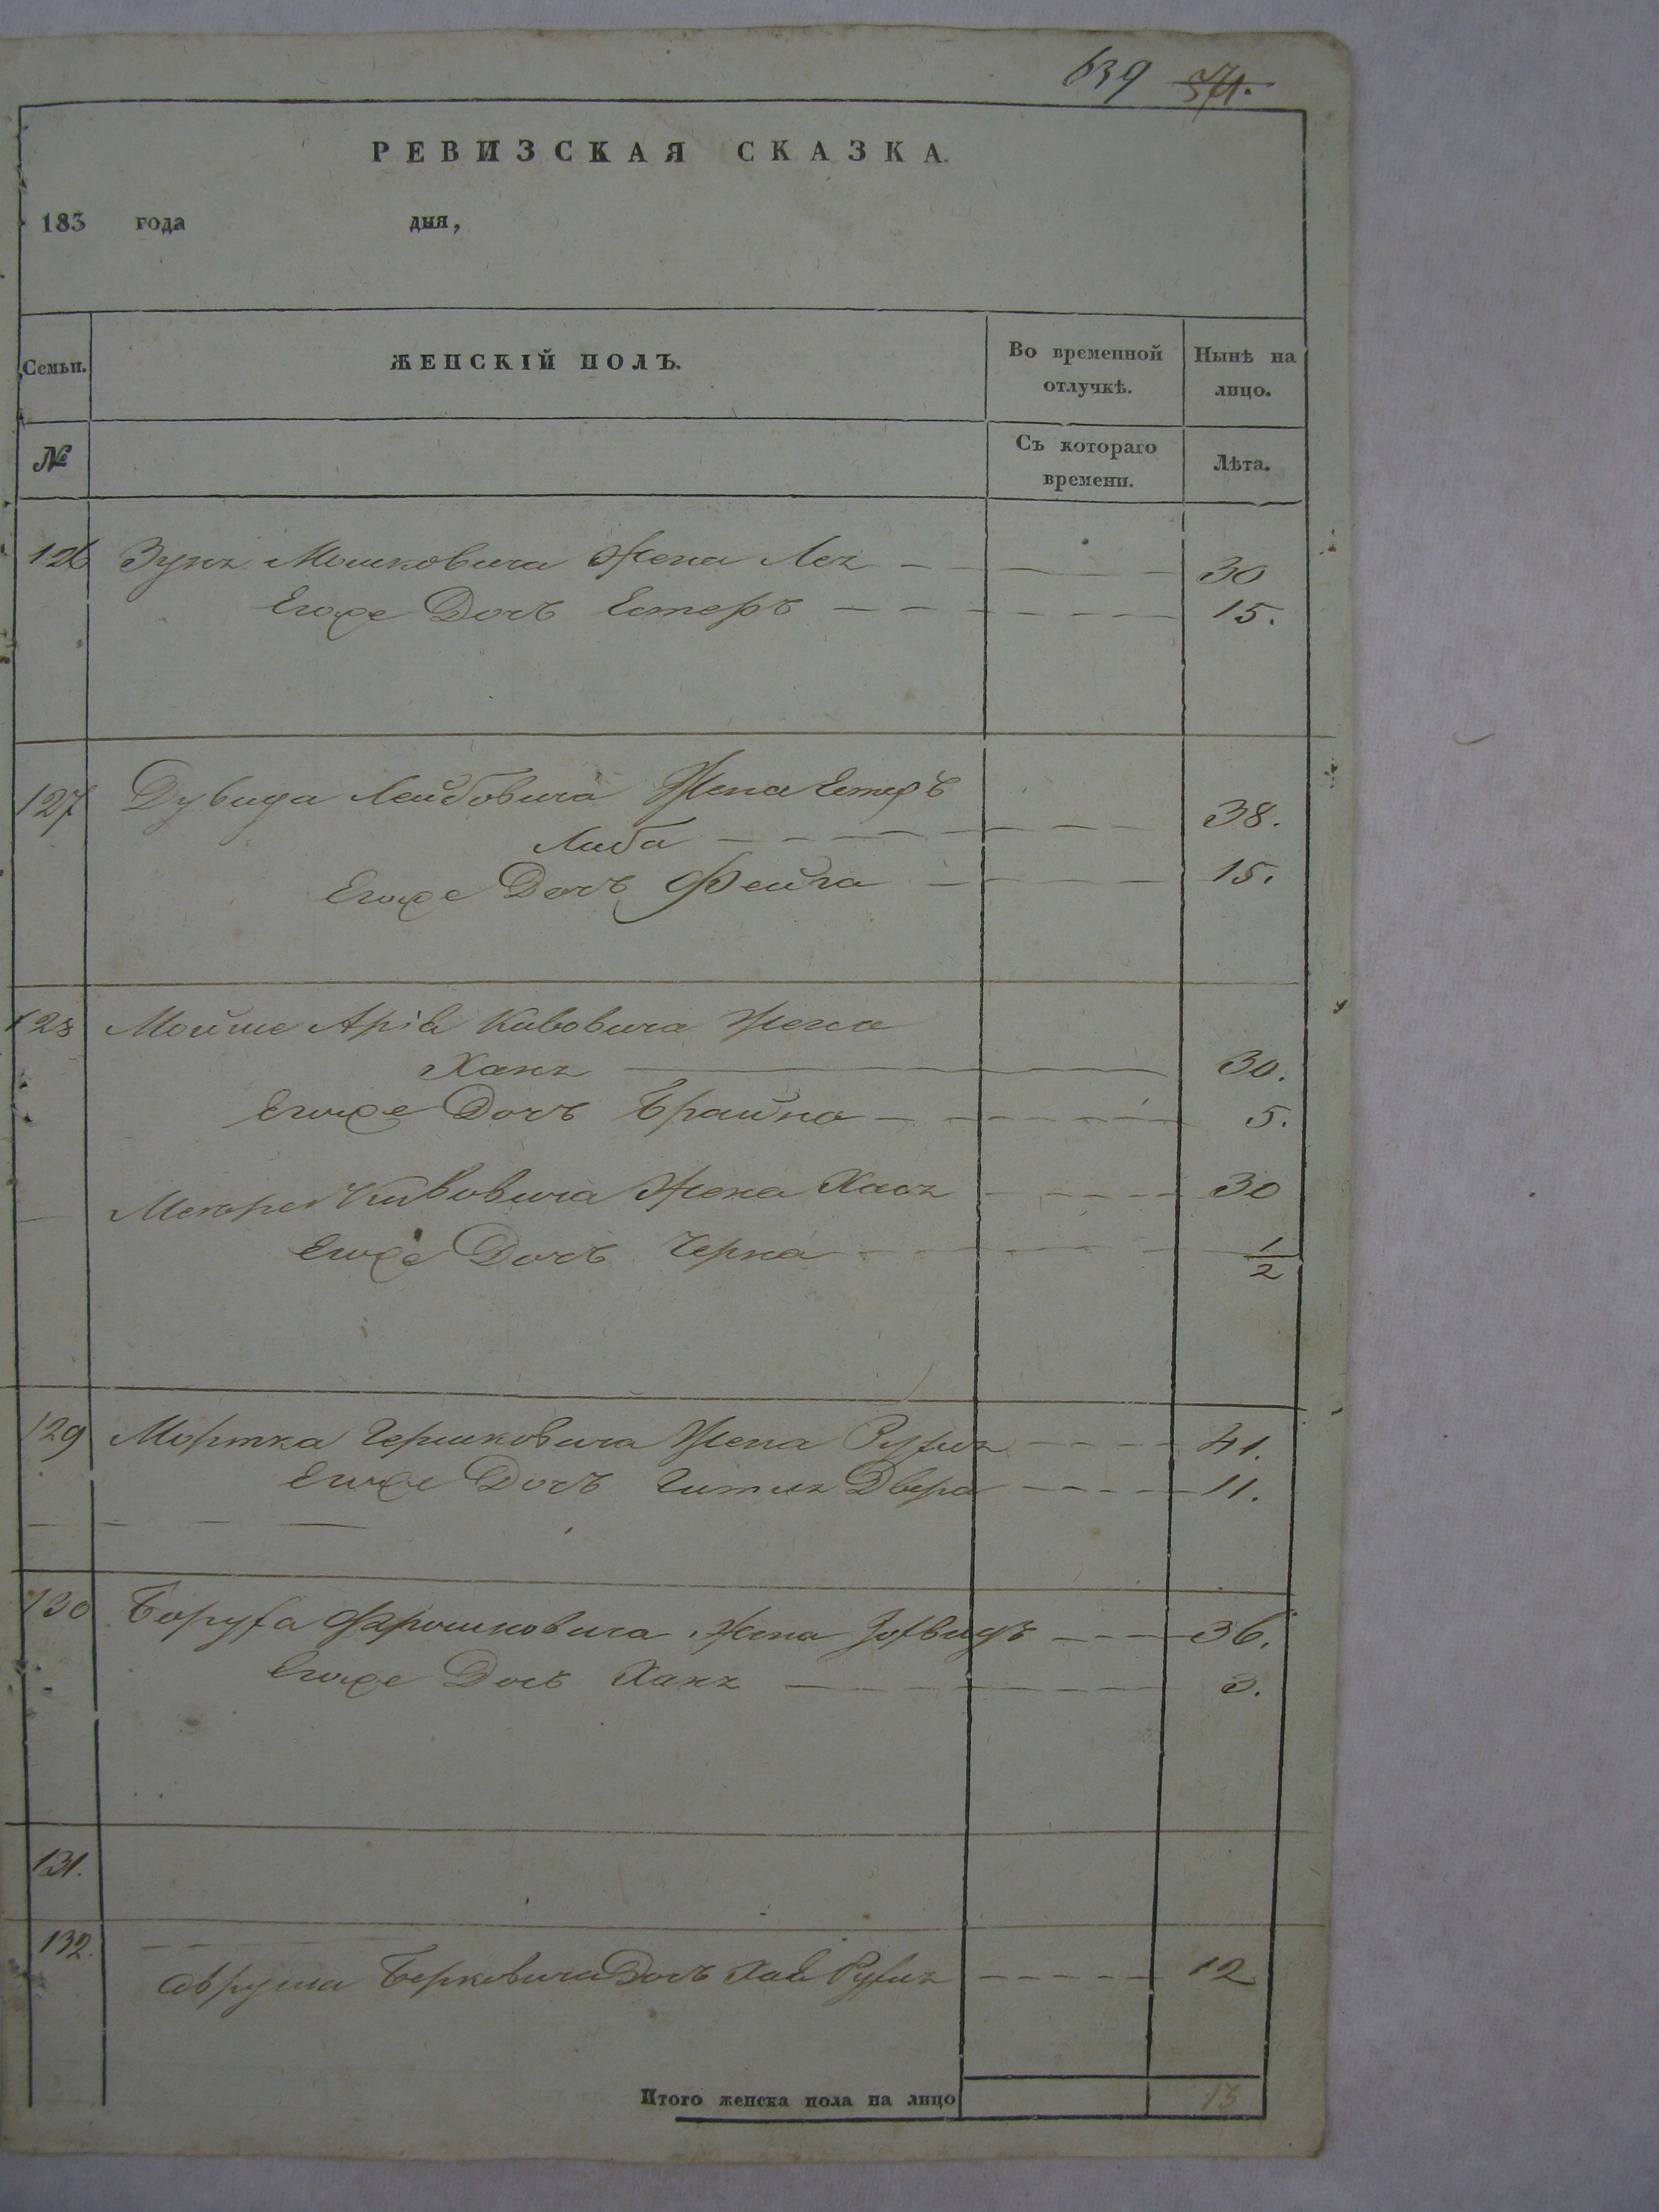 639 371.
РЕВИЗСКАЯ СКАЗКА.
183 года дня,
Семьи. ЖЕНСКІЙ ПОЛЪ. Во временной отлучкѣ. Нынѣ на лицо.
№ Съ котораго времени. Лѣта.
126 Мошковича Жена Лея 30
Егоже Дочь Естеръ 15.
127 Дувида Лейбовича Жена Естеръ
Либа 38.
Егоже Дочь Фейга 15.
128 Мойше Арія Кивовича Жена
Хана 30.
Егоже Дочь Брайна 5.
Кивовича Жена Хася 30
Егоже Дочь Черна 1/2
129 Мортка Гершковича Жена 41.
Егоже Дочь Гитля Двера 11.
130 Боруха Жена 36.
Егоже Дочь Хана 3.
131.
132.
Аврума Берковича Дочь Хая 12
Итого женска пола на лицо 13